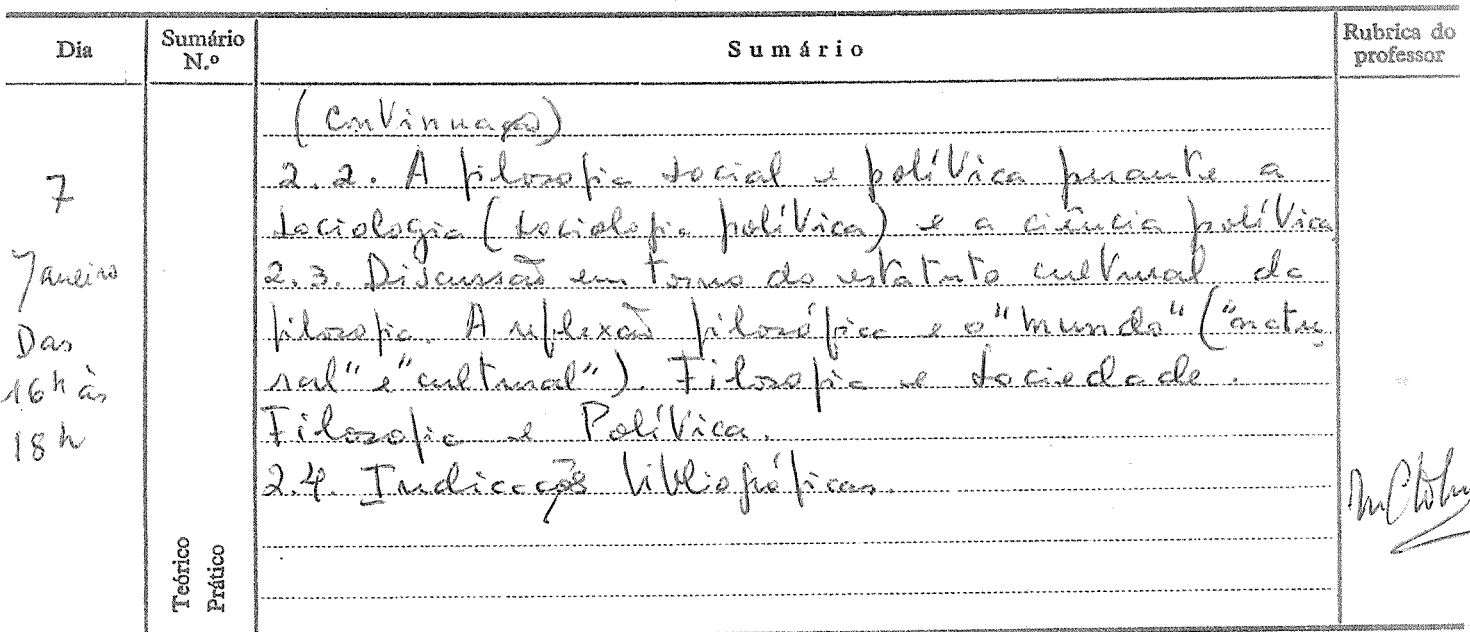 Dia
Sumário N.º
Sumário
Rubrica do professor
7
Janeiro
Das
16h às
18h
(Continuação)
2.2. A filosofia social e política perante a
sociologia (sociologia política) e a ciência política
2.3. Discussão em torno do estatuto cultural da
filosofia. A reflexão filosófica e o "mundo" ("natu
ral" e "cultural"). Filosofia e sociedade.
Filosofia e Política.
2.4. Indicações bibliográficas.
Teórico
Prático